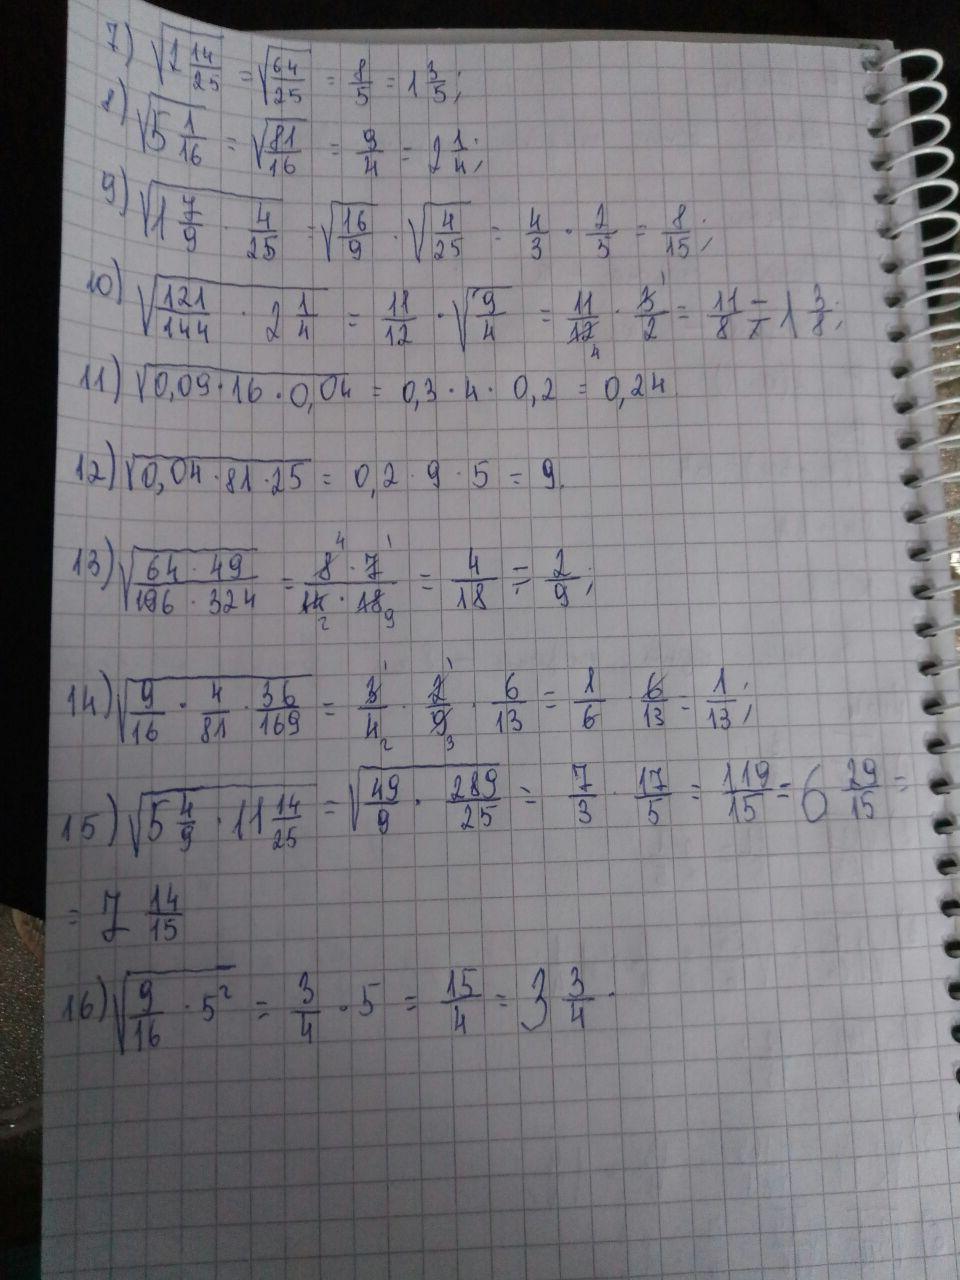 7) √(1 14/25) = √(64/25) = 8/5 = 1 3/5;
8) √(5 1/16) = √(81/16) = 9/4 = 2 1/4;
9) √(1 7/9 · 4/25) = √(16/9) · √(4/25) = 4/3 · 2/5 = 8/15;
10) √(121/144 · 2 1/4) = 11/12 · √(9/4) = 11/12 4 · 3/2 1 = 11/8 = 1 3/8;
11) √(0,09 · 16 · 0,04) = 0,3 · 4 · 0,2 = 0,24
12) √(0,04 · 81 · 25) = 0,2 · 9 · 5 = 9.
13) √((64 · 49)/(196 · 324)) = (8 4 · 7 1)/(14 2 · 18 9) = 4/18 = 2/9;
14) √(9/16 · 4/81 · 36/169) = 3 1/4 2 · 2 1/9 3 · 6/13 = 1/6 · 6/13 = 1/13;
15) √(5 4/9 · 11 14/25) = √(49/9 · 289/25) = 7/3 · 17/5 = 119/15 = 6 29/15 =
= 7 14/15
16) √(9/16 · 5²) = 3/4 · 5 = 15/4 = 3 3/4.